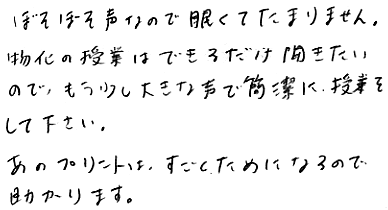 ぼそぼそ声なので眠くてたまりません。
物化の授業はできるだけ聞きたい
ので、もう少し大きな声で簡潔に、授業を
して下さい。
あのプリントは、すごくためになるので
助かります。